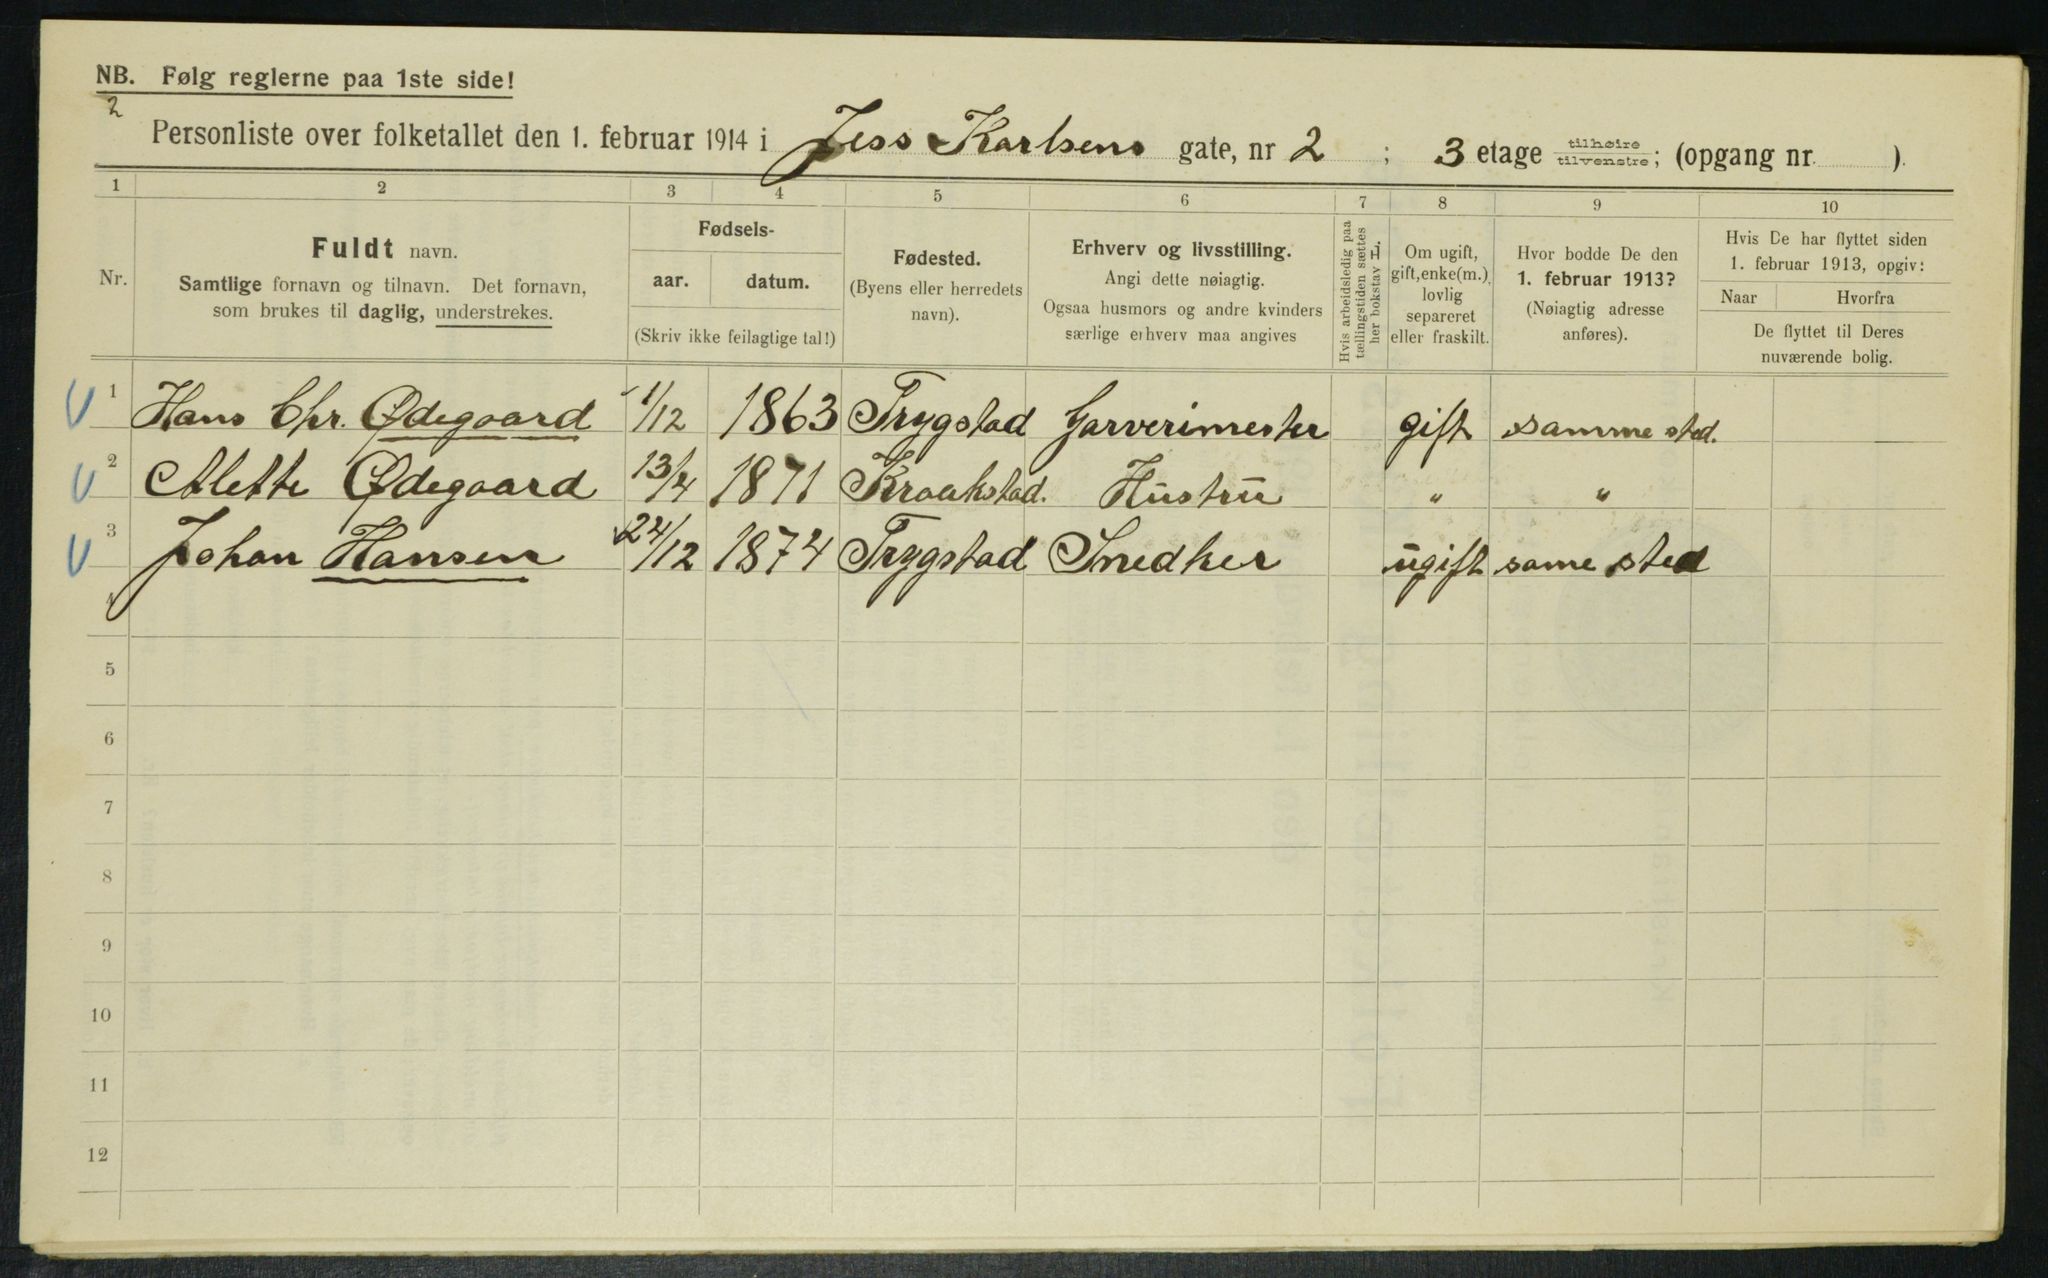 NB. Følg reglerne paa 1ste side!
2
Personliste over folketallet den 1. februar 1914 i Jess Karlsens gate, nr 2 ; 3 etage tilhøire/tilvenstre; (opgang nr ).
1 2 3 4 5 6 7 8 9 10
Nr.
Fuldt navn.
Samtlige fornavn og tilnavn. Det fornavn,
som brukes til daglig, understrekes.
Fødsels-
aar. datum.
(Skriv ikke feilagtige tal!)
Fødested.
(Byens eller herredets
navn).
Erhverv og livsstilling.
Angi dette nøiagtig.
Ogsaa husmors og andre kvinders
særlige erhverv maa angives
Hvis arbeidsledig paa
tællingstiden sættes
her bokstav L.
Om ugift,
gift, enke(m.),
lovlig
separeret
eller fraskilt.
Hvor bodde De den
1. februar 1913?
(Nøiagtig adresse
anføres).
Hvis De har flyttet siden
1. februar 1913, opgiv:
Naar Hvorfra
De flyttet til Deres
nuværende bolig.
1 Hans Chr. Ødegaard 1/12 1863 Trygstad Garverimester gift samme sted.
2 Alette Ødegaard 13/4 1871 Kraakstad. Hustru " "
3 Johan Hansen 24/12 1874 Trygstad Snedker ugift same sted
4
5
6
7
8
9
10
11
12